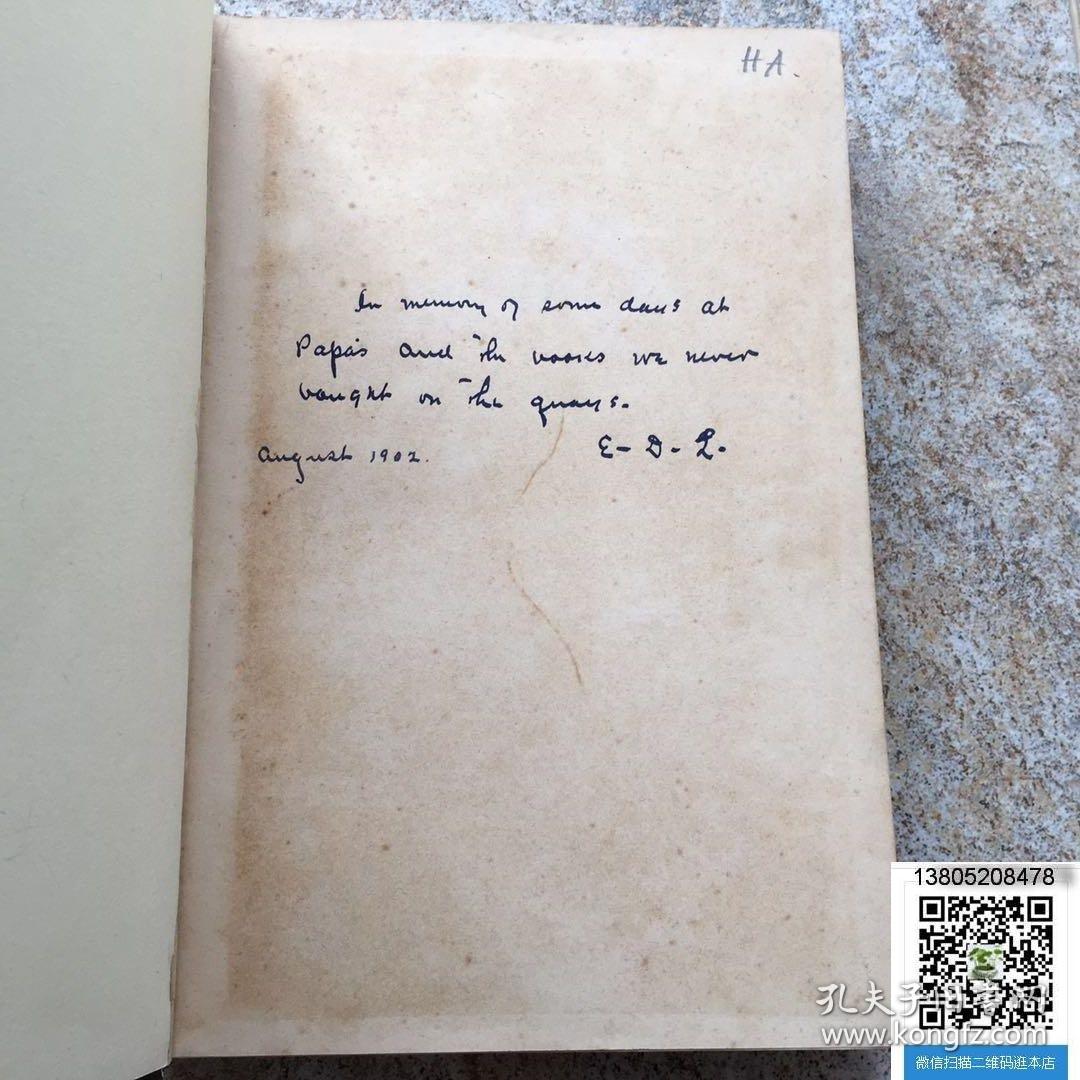 HA.
In memory of some days at
Papa's and the books we never
bought on the quays.
August 1902.
E- D- L.
13805208478
孔夫子旧书网
www.kongfz.com
微信扫描二维码逛本店